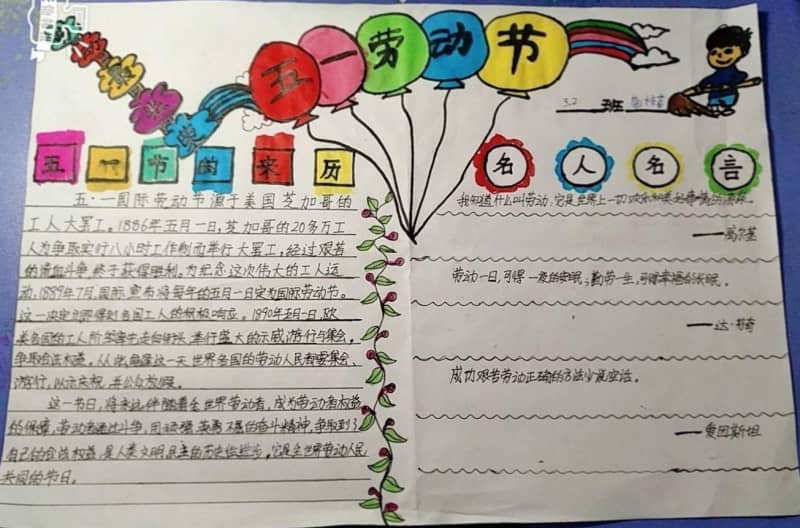 五一劳动节
3.2 班
五一节的来历
名人名言
五·一国际劳动节源于美国芝加哥的
工人大罢工。1886年五月一日,芝加哥的20多万工
人为争取实行八小时工作制而举行大罢工,经过艰苦
的流血斗争,终于获得胜利。为纪念这次伟大的工人运
动,1889年7月,国际宣布将每年的五月一日定为国际劳动节。
这一决定立即得到各国工人的积极响应。1890年五月一日,欧
美各国的工人阶级率先走向街头,举行盛大的示威游行与集会,
争取合法权益。从此,每逢这一天世界各国的劳动人民都要集会、
游行,以示庆祝,并公众放假。
这一节日,将永远伴随着全世界劳动者,成为劳动者权益
的保障,劳动者通过斗争,用顽强、英勇不屈的奋斗精神,争取到了
自己的合法权益,是人类文明民主的历史性进步。它是全世界劳动人民
共同的节日。
我知道什么叫劳动,它是世界上一切欢乐和美好事情的源泉。
——高尔基
劳动一日,可得一夜的安眠;勤劳一生,可得幸福的长眠。
——达·芬奇
成功艰苦劳动正确的方法少说空话。
——爱因斯坦